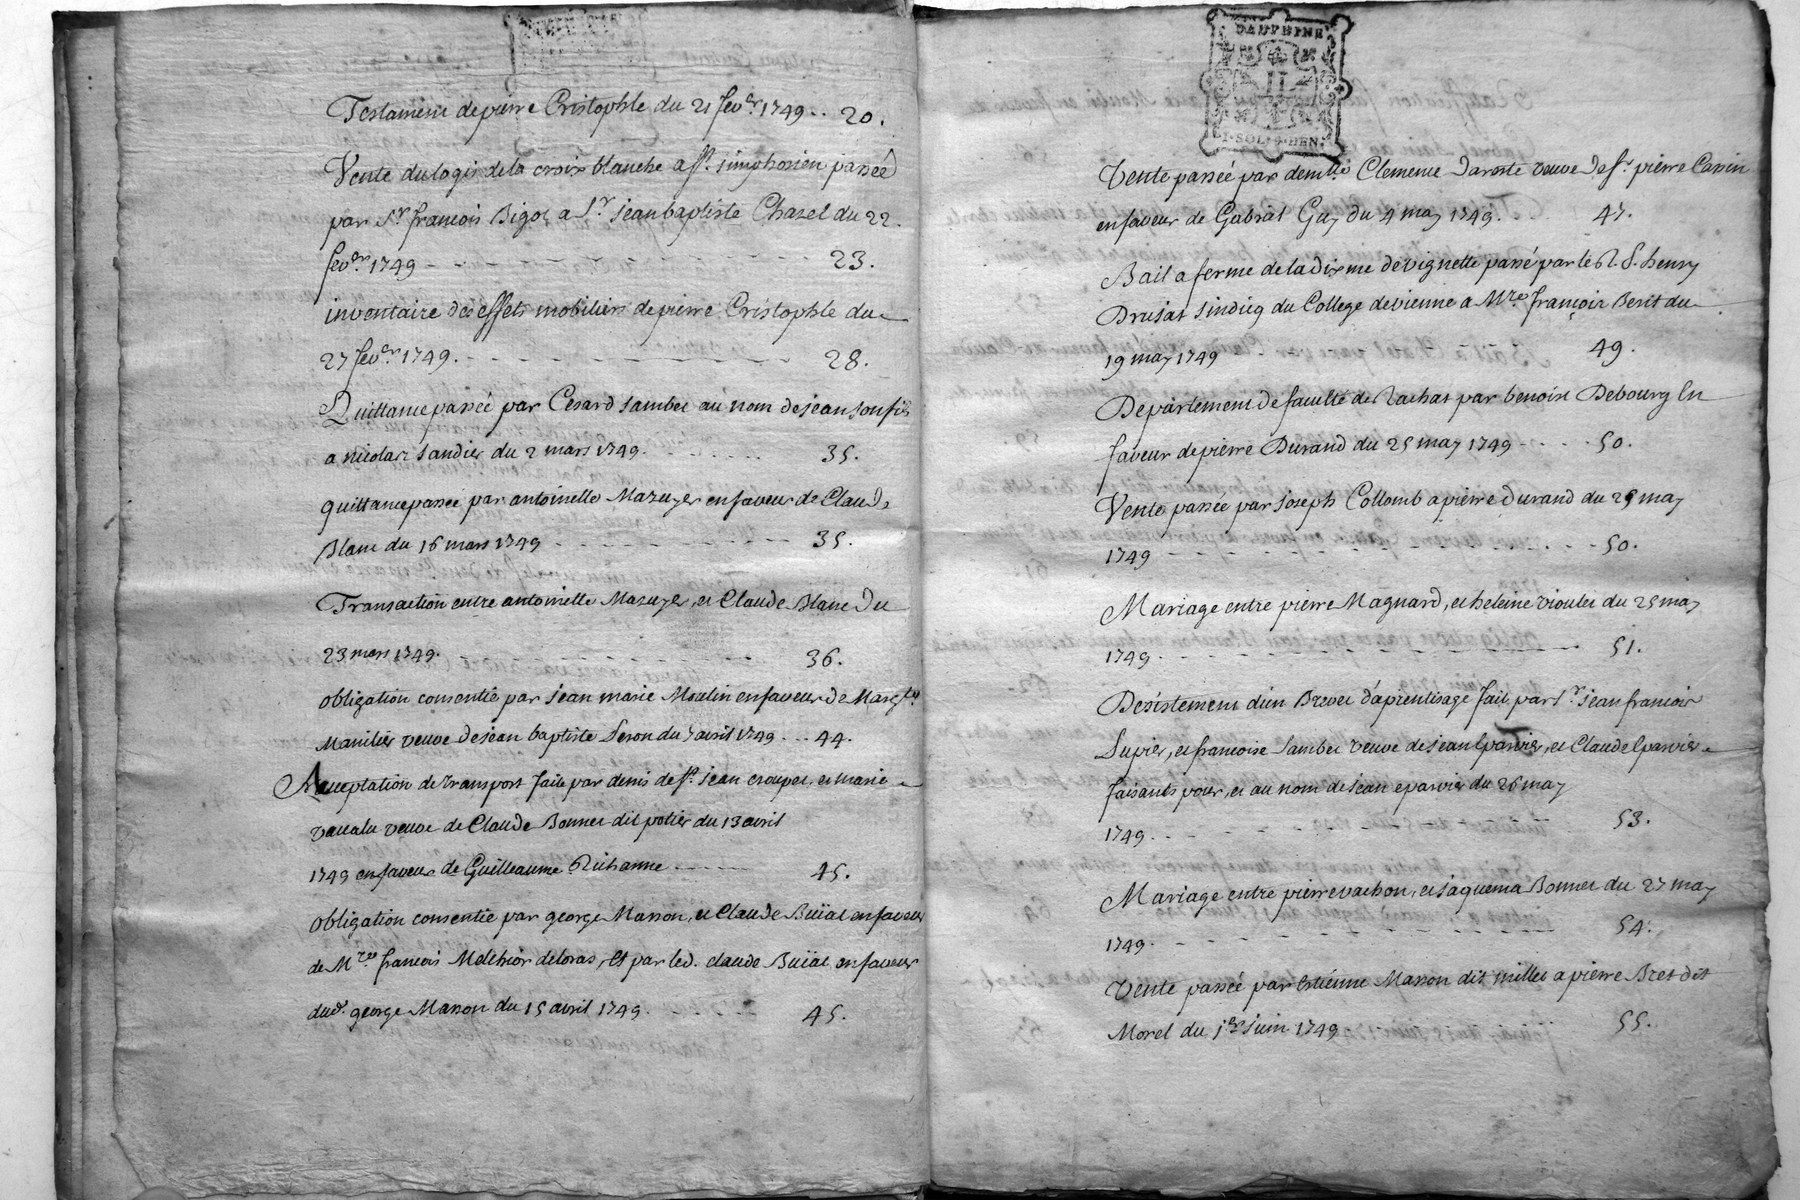 Testament de pierre Cristophle du 21 fev.er 1749 .. 20.
Vente du logis de la croix blanche a st. simphorien passée
par Sr. francois Bigot a Sr. jean baptiste Chazel du 22.
fev.er 1749 - - - - - 23.
inventaire des effets mobiliers de pierre Cristophle du
27 fev.er 1749. - - - - - 28.
Quittance passée par Cesard Jambet au nom de jean son fils
a nicolas Sandier du 2 mars 1749. - - - - 35.
quittance passée par antoinette Mazuyer en faveur de Claude
Blanc du 16 mars 1749 - - - - - 35.
Transaction entre antoinette Mazuyer, et Claude Blanc du
23 mars 1749. - - - - - 36.
obligation consentie par jean marie Moulin en faveur de
Manilier veuve de jean baptiste Seron du 7 avril 1749 . . 44.
Acceptation de transport faite par denis de st. jean croupet, et marie
veuve de Claude Bonnet dit potier du 13 avril
1749 en faveur de Guilleaume Richanne - - - - 45.
obligation consentie par george Manon, et Claude Buïat en faveur
de Mre. francois Melchior deloras, et par led. claude Buïat en faveur
dud. george Manon du 15 avril 1749. - - - - 45.
DAUPHINE
II
1·SOL·4·DEN·
Vente passée par demlle. Clemence Daroste veuve de sr. pierre Cassin
en faveur de Gabriel Guy du 4 may 1749. 47.
Bail a ferme de la dixme de vignette passé par le R. P. henry
Druisat sindicq du College de vienne a Mre. françois Berit du
19 may 1749 - 49.
Departement de faculté de Rachat par benoist Debourg en
faveur de pierre Durand du 25 may 1749 - - - - 50.
Vente passée par joseph Collomb a pierre Durand du 25 may
1749 - - - - - 50.
Mariage entre pierre Magnard, et heleine viollet du 25 may
1749 - - - - - 51.
Desistement d'un Brevet d'aprentisage fait par sr. jean francois
Lupier, et francoise Jambet veuve de jean Eparvier, et Claude Eparvier
faisants pour, et au nom de jean eparvier du 26 may
1749. - - - - - 53.
Mariage entre pierre vachon, et jaquema Bonnet du 27 may
1749. - - - - - 54.
Vente passée par Estienne Manon dit millet a pierre Bret dit
Morel du 1er. juin 1749 55.